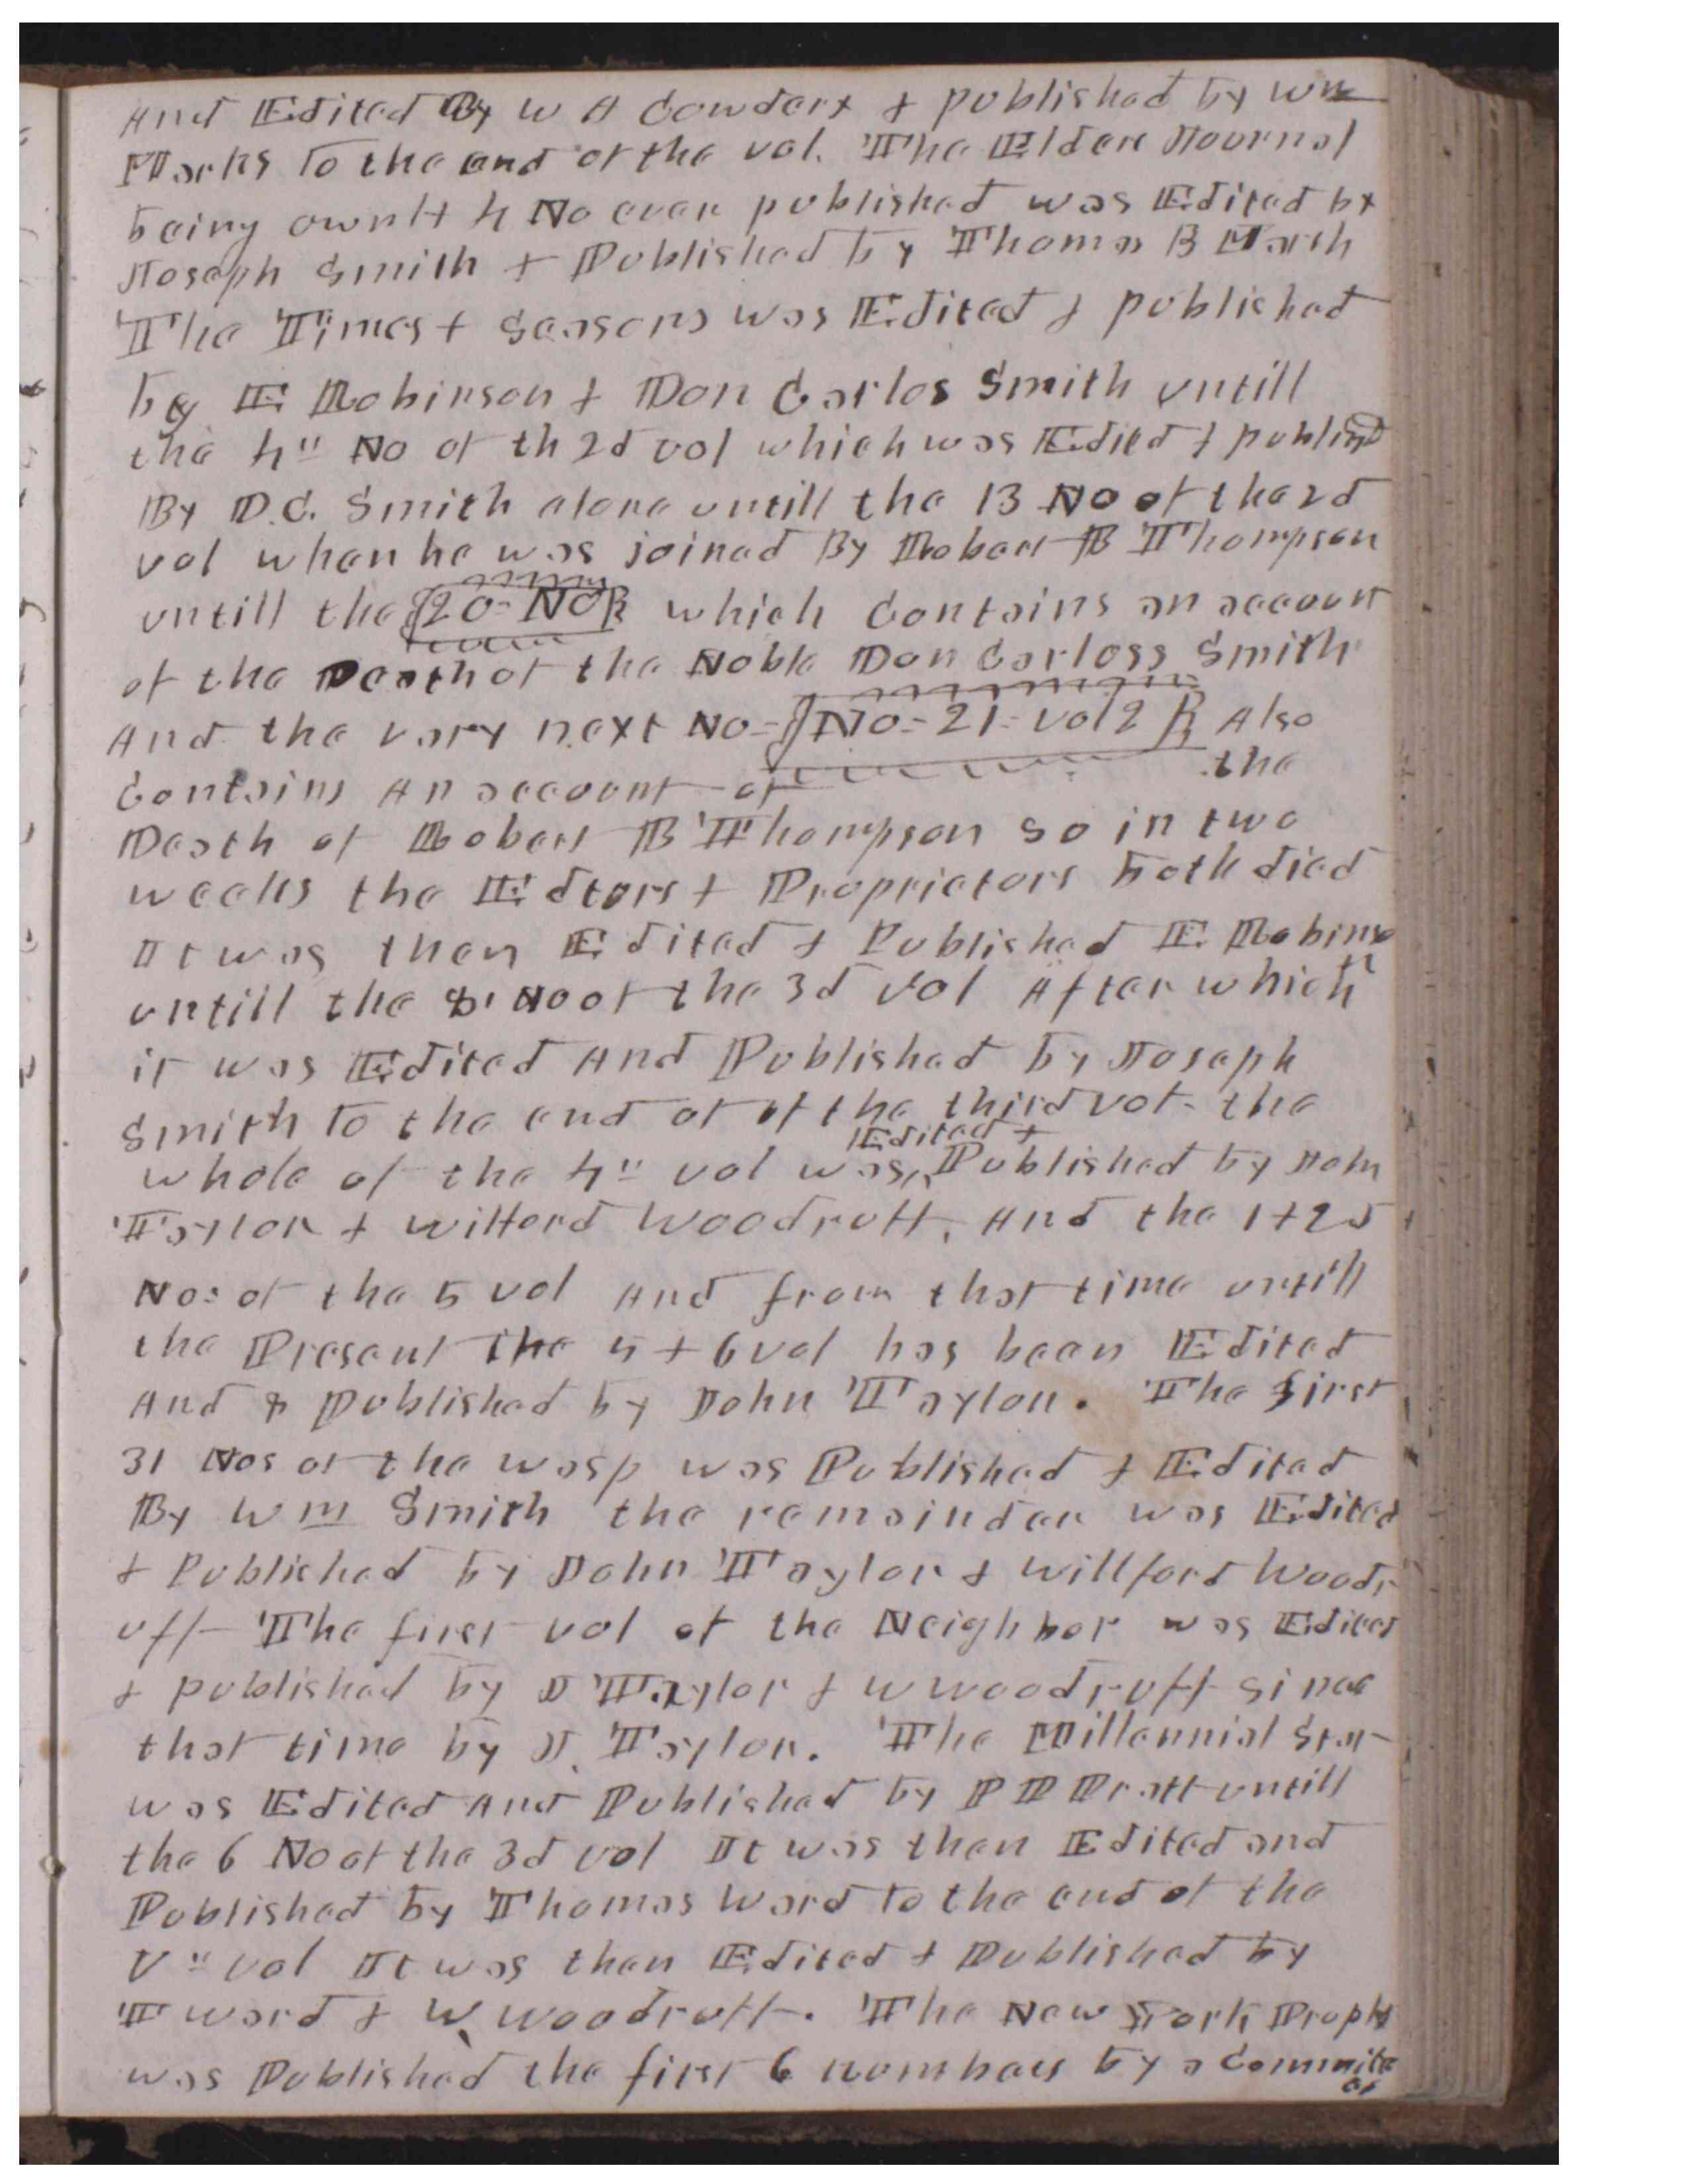 And Edited By W A Cowdery & published by Wm
Marks to the end of the vol. The Elders Journal
being ownly 4 No ever published was Edited by
Joseph Smith & Published by Thomas B Marsh
The Times & Seasons was Edited & published
by E Robinson & Don Carlos Smith untill
the 4" No of th 2d vol which was Edited & publisd
By D.C. Smith alone untill the 13 No of the 2d
vol when he was joined By Robert B Thompson
untill the 20- No which Contains an account
of the Death of the Noble Don Carloss Smith
And the very next No- No- 21- Vol 2 Also
Contains An account of the
Death of Robert B Thompson so in two
weeks the Edtors & Proprietors both died
It was then Edited & Published E. Robins
untill the No of the 3d vol After which
it was Edited And Published by Joseph
Smith to the end of of the third vol- the
whole of the 4" vol was Edited & Published by John
Taylor & Wilford Woodruff, And the 1 & 2d
No: of the 5 vol And from that time untill
the Present the 5 & 6 vol has been Edited
And & Published by John Taylor. The first
31 Nos of the wasp was Published & Edited
By Wm Smith the remainder was Edited
& Published by John Taylor & Willford Woodr
uff The first vol of the Neighbor was Edited
& published by J Taylor & W Woodruff since
that time by J. Taylor. The Millennial Star
was Edited And Published by P P Pratt untill
the 6 No of the 3d vol It was then Edited and
Published by Thomas Ward to the end of the
V" vol It was then Edited & Published by
T Ward & W Woodruff. The New York Prophet
was Published the first 6 numbers by a Committe
of